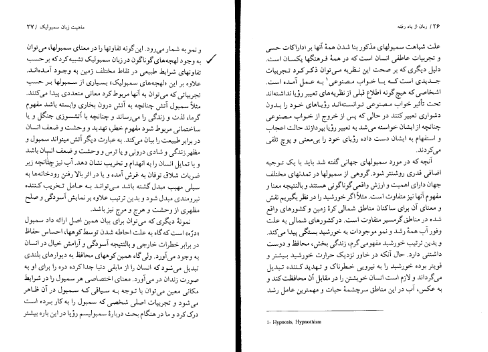 ۲۶ / زبان از یاد رفته
علت شباهت سمبولهای مذکور بنا شدن همهٔ آنها بر ادراکات حسی
و تجربیات عاطفی انسان است که در همهٔ فرهنگها یکسان است.
دلیل دیگری که بر صحت این نظریه می‌توان ذکر کرد تجربیات
جدیدی است که با خواب مصنوعی¹ به عمل آمده است.
اشخاصی که هیچ‌گونه اطلاع قبلی از نظریه‌های تعبیر رؤیا نداشته‌اند
تحت تأثیر خواب مصنوعی توانسته‌اند رؤیاهای خود را بدون
دشواری تعبیر کنند در حالی که پس از خروج از خواب مصنوعی
چنانچه از ایشان خواسته می‌شد به تعبیر رؤیا بپردازند حالت اعجاب
و استفهام به ایشان دست داده رؤیای خود را بی‌معنی و پوچ تلقی
می‌کردند.
آنچه که در مورد سمبولهای جهانی گفته شد باید با یک توجیه
اضافی قدری روشنتر شود. گروهی از سمبولها در تمدنهای مختلف
جهان دارای اهمیت و ارزش واقعی گوناگونی هستند و بالنتیجه معنا و
مفهوم آنها نیز متفاوت است. مثلاً اگر خورشید را در نظر بگیریم نقش
و معنای آن برای ساکنان مناطق شمالی کرهٔ زمین و کشورهای واقع
شده در مناطق گرمسیر متفاوت است. در کشورهای شمالی به علت
وفور آب همهٔ رشد و نمو موجودات به خورشید بستگی پیدا می‌کند،
و بدین ترتیب خورشید مفهومی گرم، زندگی بخش، محافظ و دوست
داشتنی دارد. حال آنکه در خاور نزدیک حرارت خورشید بیشتر و
قویتر بوده خورشید را به نیرویی خطرناک و تهدید کننده تبدیل
می‌گرداند و لازم است انسان خویشتن را در مقابل آن محافظت کند و
به عکس، آب در این مناطق سرچشمهٔ حیات و مهمترین عامل رشد
1- Hypnosis, Hypnotism
ماهیت زبان سمبولیک / ۲۷
و نمو به شمار می‌رود. این‌گونه تفاوتها را در معنای سمبولها، می‌توان
به وجود لهجه‌های گوناگون در زبان سمبولیک تشبیه کرد که بر حسب
تفاوتهای شرایط طبیعی در نقاط مختلف زمین به وجود آمده‌اند.
علاوه بر این «لهجه‌های سمبولیک» بسیاری از سمبولها بر حسب
تجربیاتی که می‌توان به آنها مربوط کرد معانی متعددی پیدا می‌کنند.
مثلاً سمبول آتش چنانچه به آتش درون بخاری وابسته باشد مفهوم
گرما، لذت و زندگی را می‌رساند و چنانچه با آتش‌سوزی جنگل و یا
ساختمانی مربوط شود مفهوم خطر، تهدید و وحشت و ضعف انسان
در برابر طبیعت را بیان می‌کند. به عبارت دیگر آتش میتواند سمبول و
مظهر زندگی و شادی درونی و یا ترس و وحشت و ضعف انسان باشد
و یا تمایل انسان را به انهدام و تخریب نشان دهد. آب نیز چنانچه زیر
ضربات شلاق توفان به غرش آمده و یا در اثر بالا رفتن رودخانه‌ها به
سیلی مهیب مبدل گشته باشد می‌تواند به عامل تخریب کننده
نیرومندی مبدل شود و بدین ترتیب علاوه بر نمایش آسودگی و صلح
مظهری از وحشت و هرج و مرج نیز باشد.
نمونهٔ دیگری که می‌توان برای بیان همین اصل ارائه داد سمبول
«دره» است که به علت احاطه شدن توسط کوهها، احساس حفاظ
در برابر خطرات خارجی و بالنتیجه آسودگی و آرامش خیال در انسان
به وجود می‌آورد. ولی گاه همین کوههای محافظ به دیوارهای بلندی
تبدیل می‌شود که انسان را از مابقی دنیا جدا کرده دره را برای او به
صورت زندان در می‌آورد. معنای اختصاصی هر سمبول را در شرایط
مکانی معین می‌توان با توجه به سیاقی که سمبول در آن ظاهر
می‌شود و تجربیات اصلی شخصی که سمبول را به کار برده است
درک کرد و ما در هنگام بحث دربارهٔ سمبولیسم رؤیا در این باره بیشتر